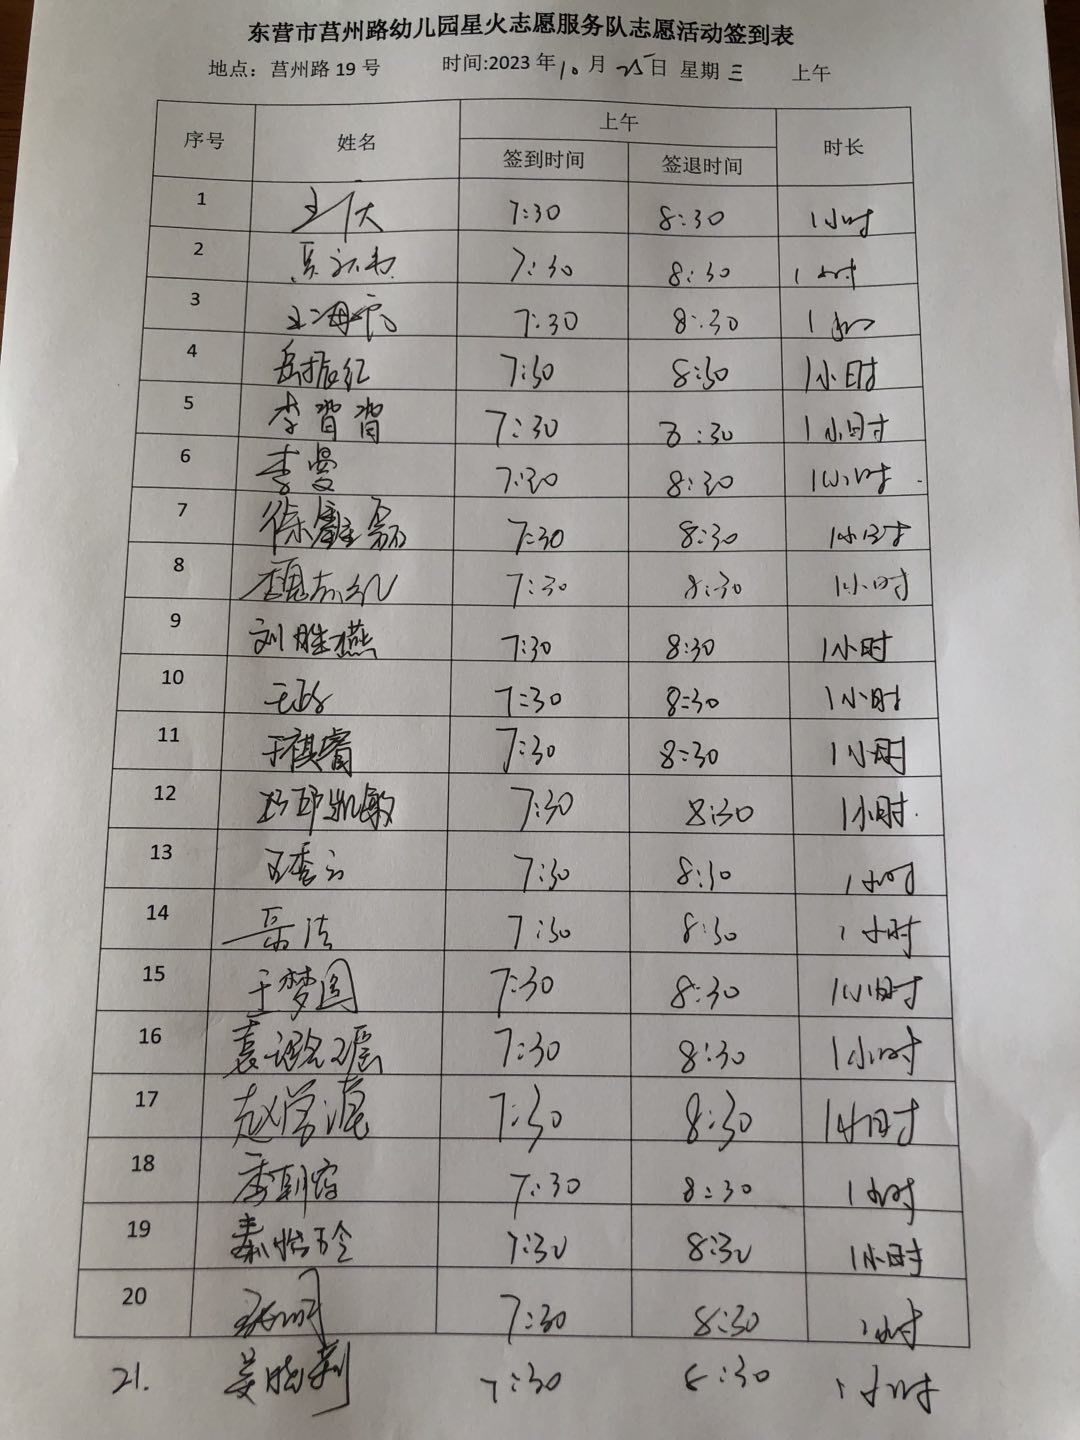 东营市莒州路幼儿园星火志愿服务队志愿活动签到表
地点：莒州路 19 号 时间:2023 年 10 月 25 日 星期 三 上午
序号 姓名 上午 时长
签到时间 签退时间
1 7:30 8:30 1小时
2 7:30 8:30 1小时
3 7:30 8:30 1
4 岳振红 7:30 8:30 1小时
5 李背背 7:30 8:30 1小时
6 李曼 7:30 8:30 1小时
7 徐 7:30 8:30 1小时
8 魏志红 7:30 8:30 1小时
9 刘胜燕 7:30 8:30 1小时
10 7:30 8:30 1小时
11 于祺睿 7:30 8:30 1小时
12 凯敏 7:30 8:30 1小时
13 王秀云 7:30 8:30 1小时
14 岳洁 7:30 8:30 1小时
15 于梦圆 7:30 8:30 1小时
16 袁 瑶 7:30 8:30 1小时
17 赵学 7:30 8:30 1小时
18 季朝 7:30 8:30 1小时
19 秦怡玲 7:30 8:30 1小时
20 7:30 8:30 1小时
21. 姜晓莉 7:30 8:30 1小时